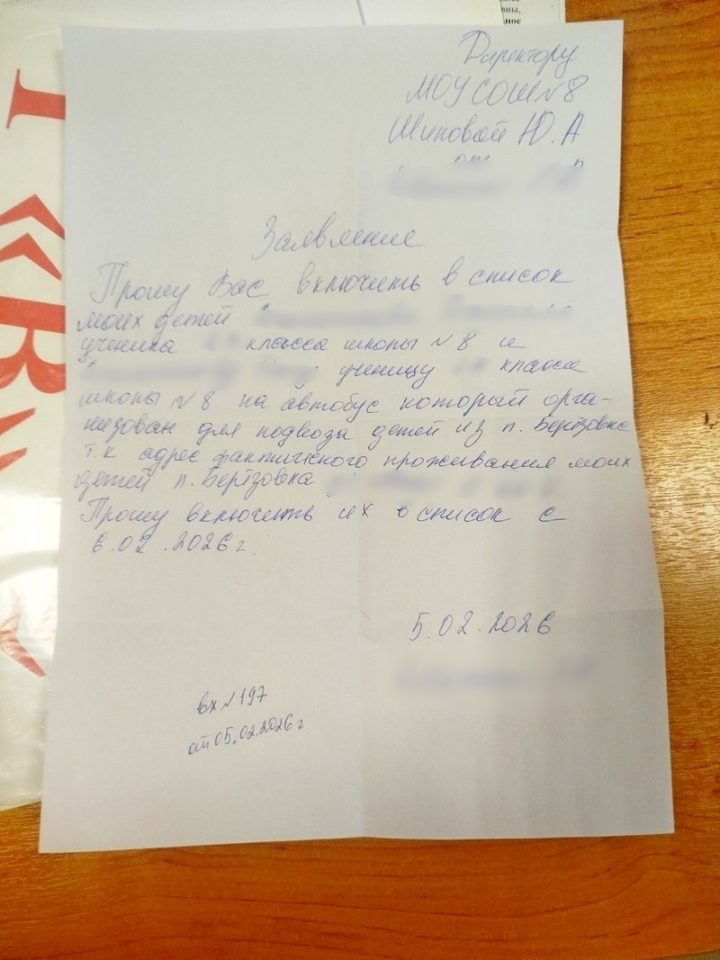 Директору
МОУ СОШ №8
Шиповой Ю.А
от
Заявление
Прошу Вас включить в список
моих детей
ученика класса школы №8 и
ученицу класса
школы №8 на автобус который орга-
низован для подвоза детей из п. Берёзовка
т.к адрес фактического проживания моих
детей п. Берёзовка
Прошу включить их в список с
6.02.2026г.
5.02.2026
вх №197
от 05.02.2026г